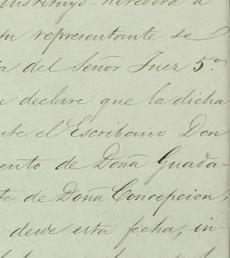 instituyo heredera a
su representante se
ia del Señor Juez 5.º
e declare que la dicha
nte el Escribano Don
ento de Doña Guada-
te de Doña Concepcion,
desde esta fecha, in-